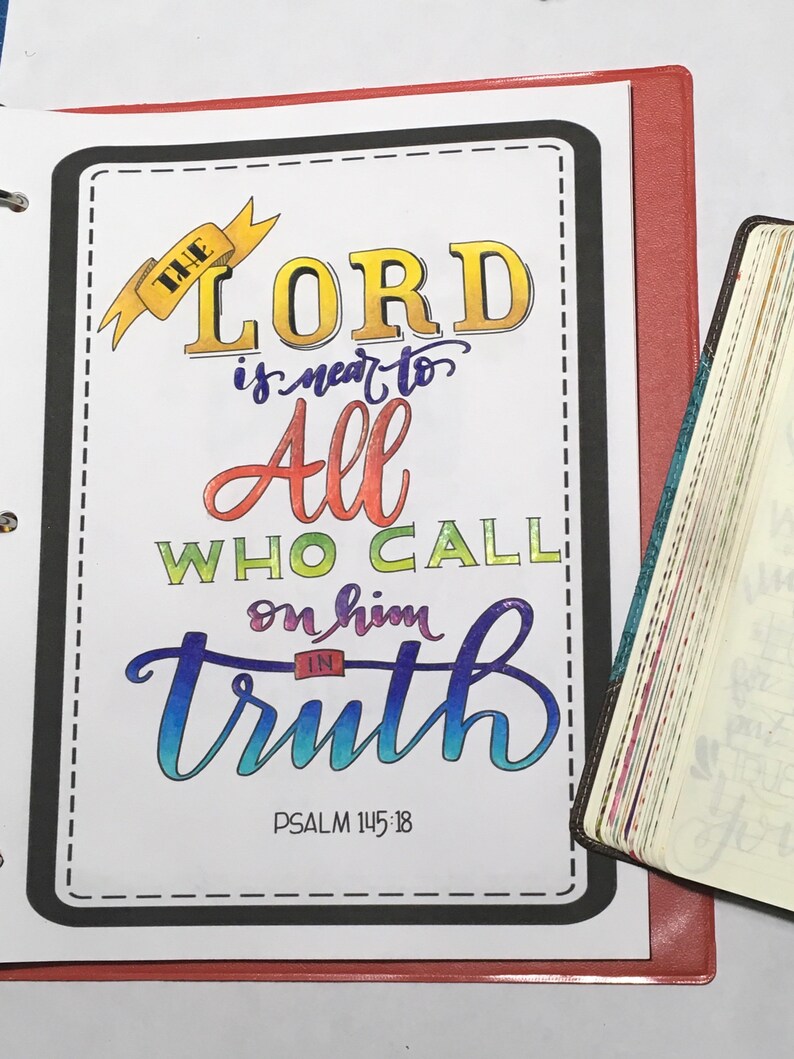 THE LORD
is near to
All
WHO CALL
on him
IN
truth
PSALM 145:18